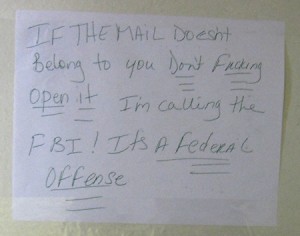 IF THE MAIL Doesnt
Belong to you Don't Fucking
Open it I'm calling the
FBI! Its A Federal
OFFense